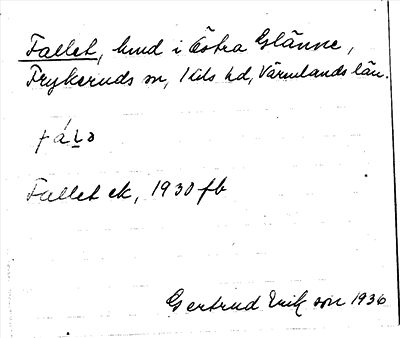 Fallet, hmd i Östra Glänne,
Frykeruds sn, Kils hd, Värmlands län.
Fallet ek, 1930 fb
Gertrud Erikson 1936